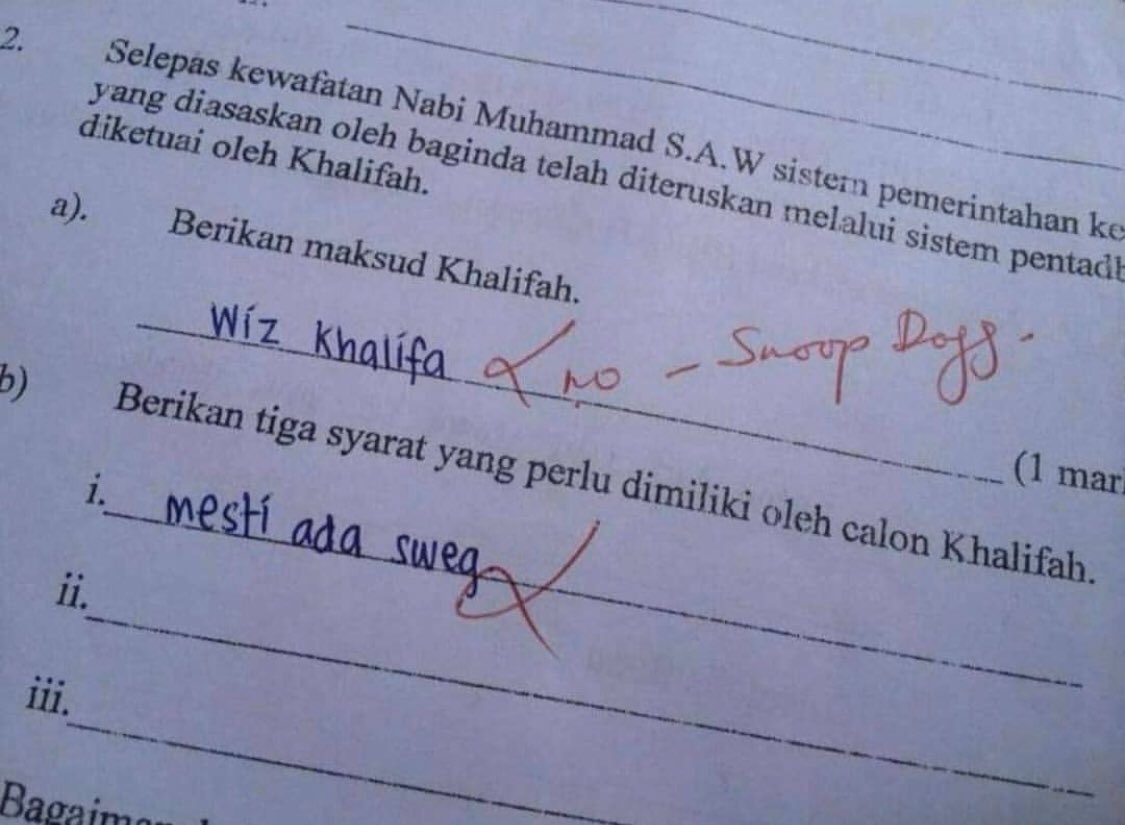 2. Selepas kewafatan Nabi Muhammad S.A.W sistem pemerintahan
yang diasaskan oleh baginda telah diteruskan melalui sistem
diketuai oleh Khalifah.
a). Berikan maksud Khalifah.
Wiz Khalifa no - Snoop Dogg.
(1
b) Berikan tiga syarat yang perlu dimiliki oleh calon Khalifah.
i. mesti ada sweg
ii.
iii.